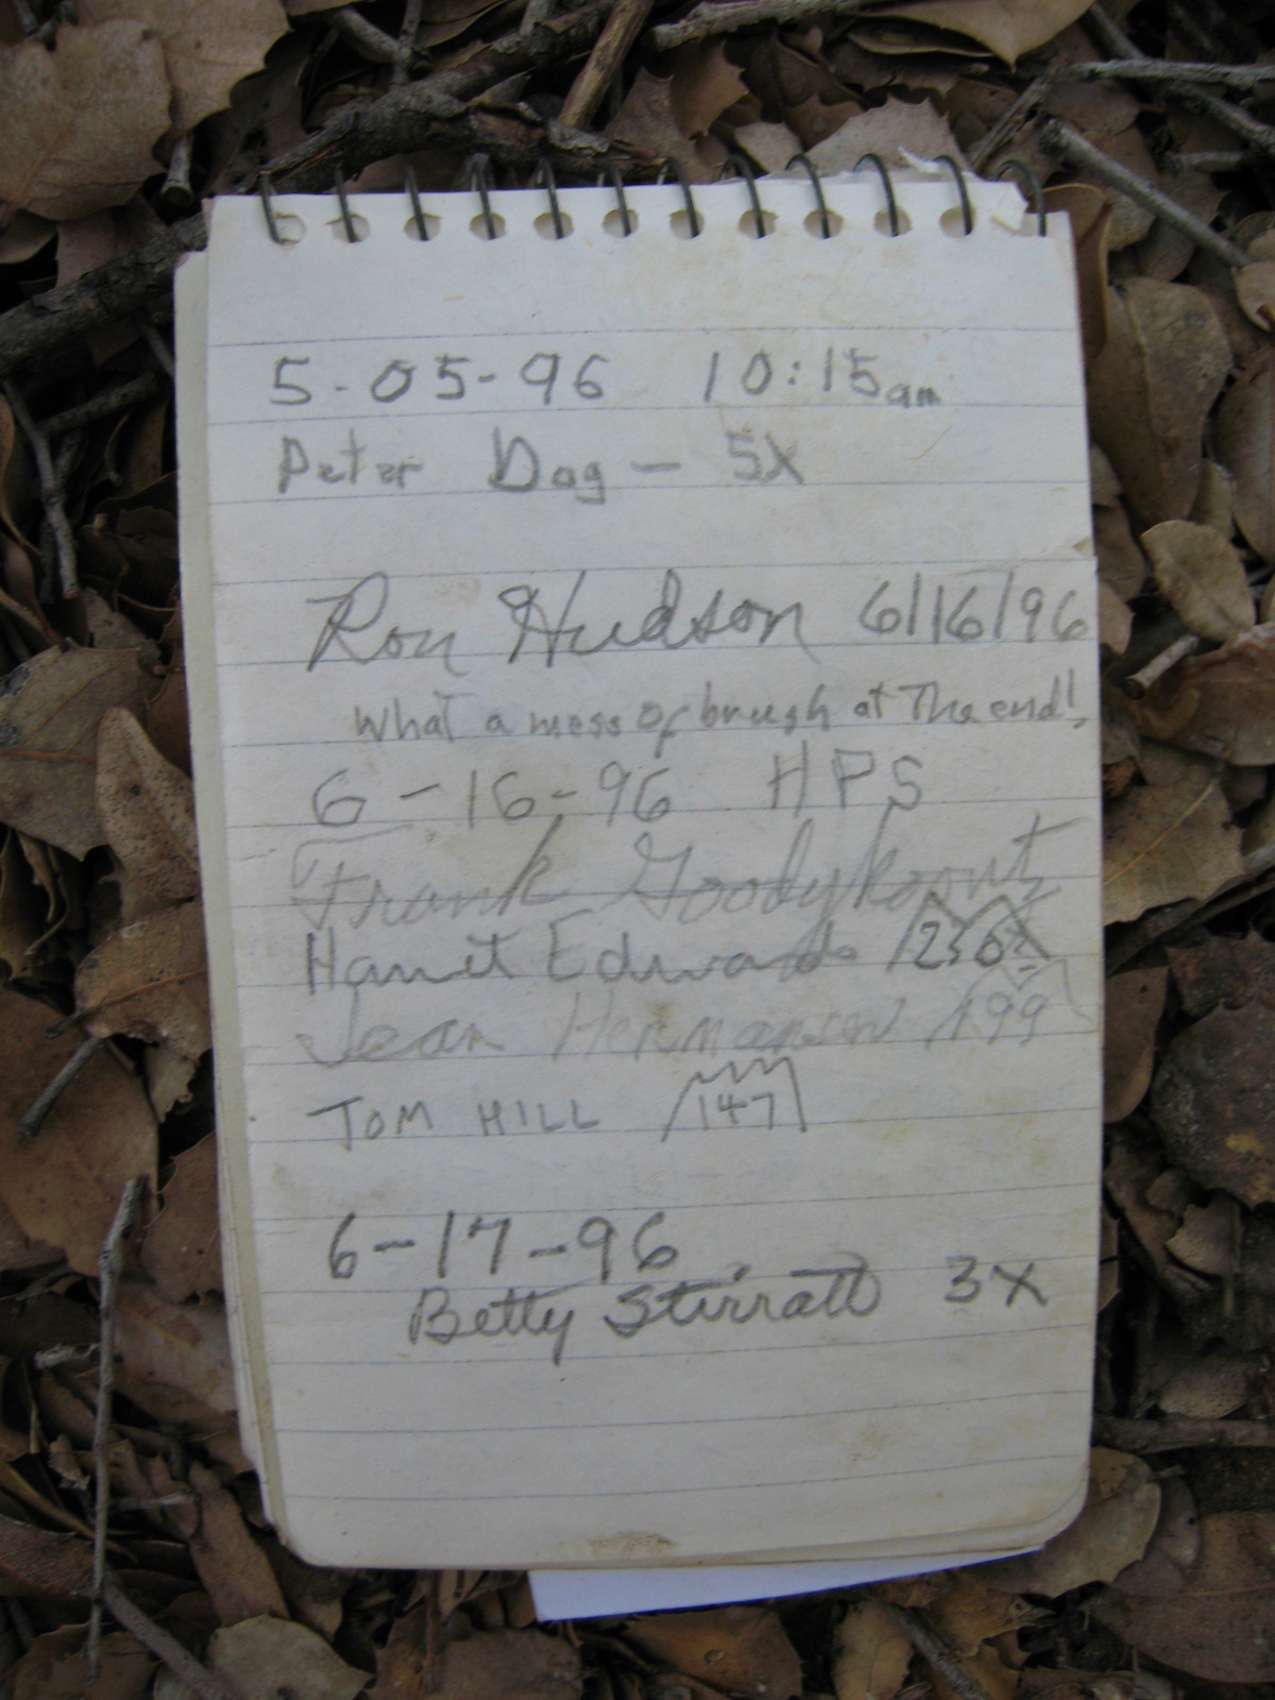 5-05-96 10:15am
Peter Dog - 5X
Ron Hudson 6/16/96
What a mess of brush at The end!
6-16-96 HPS
Frank Goodykoontz
Harriet Edwards 250X
Jean Hermansen 199
TOM HILL 147
6-17-96
Betty Stirratt 3X